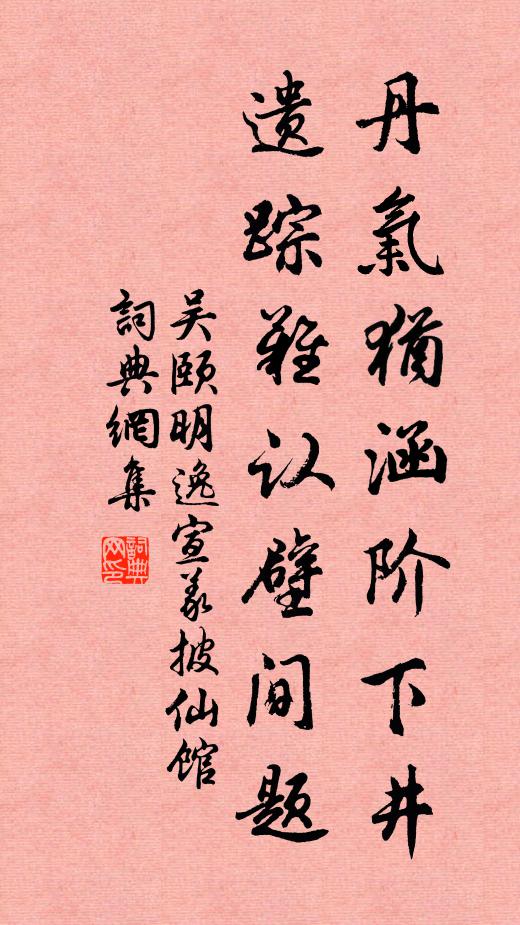 丹氣猶涵阶下井
遗踪难认壁间题
吴颐明逸宣义披仙馆
詞典網集
詞典网印